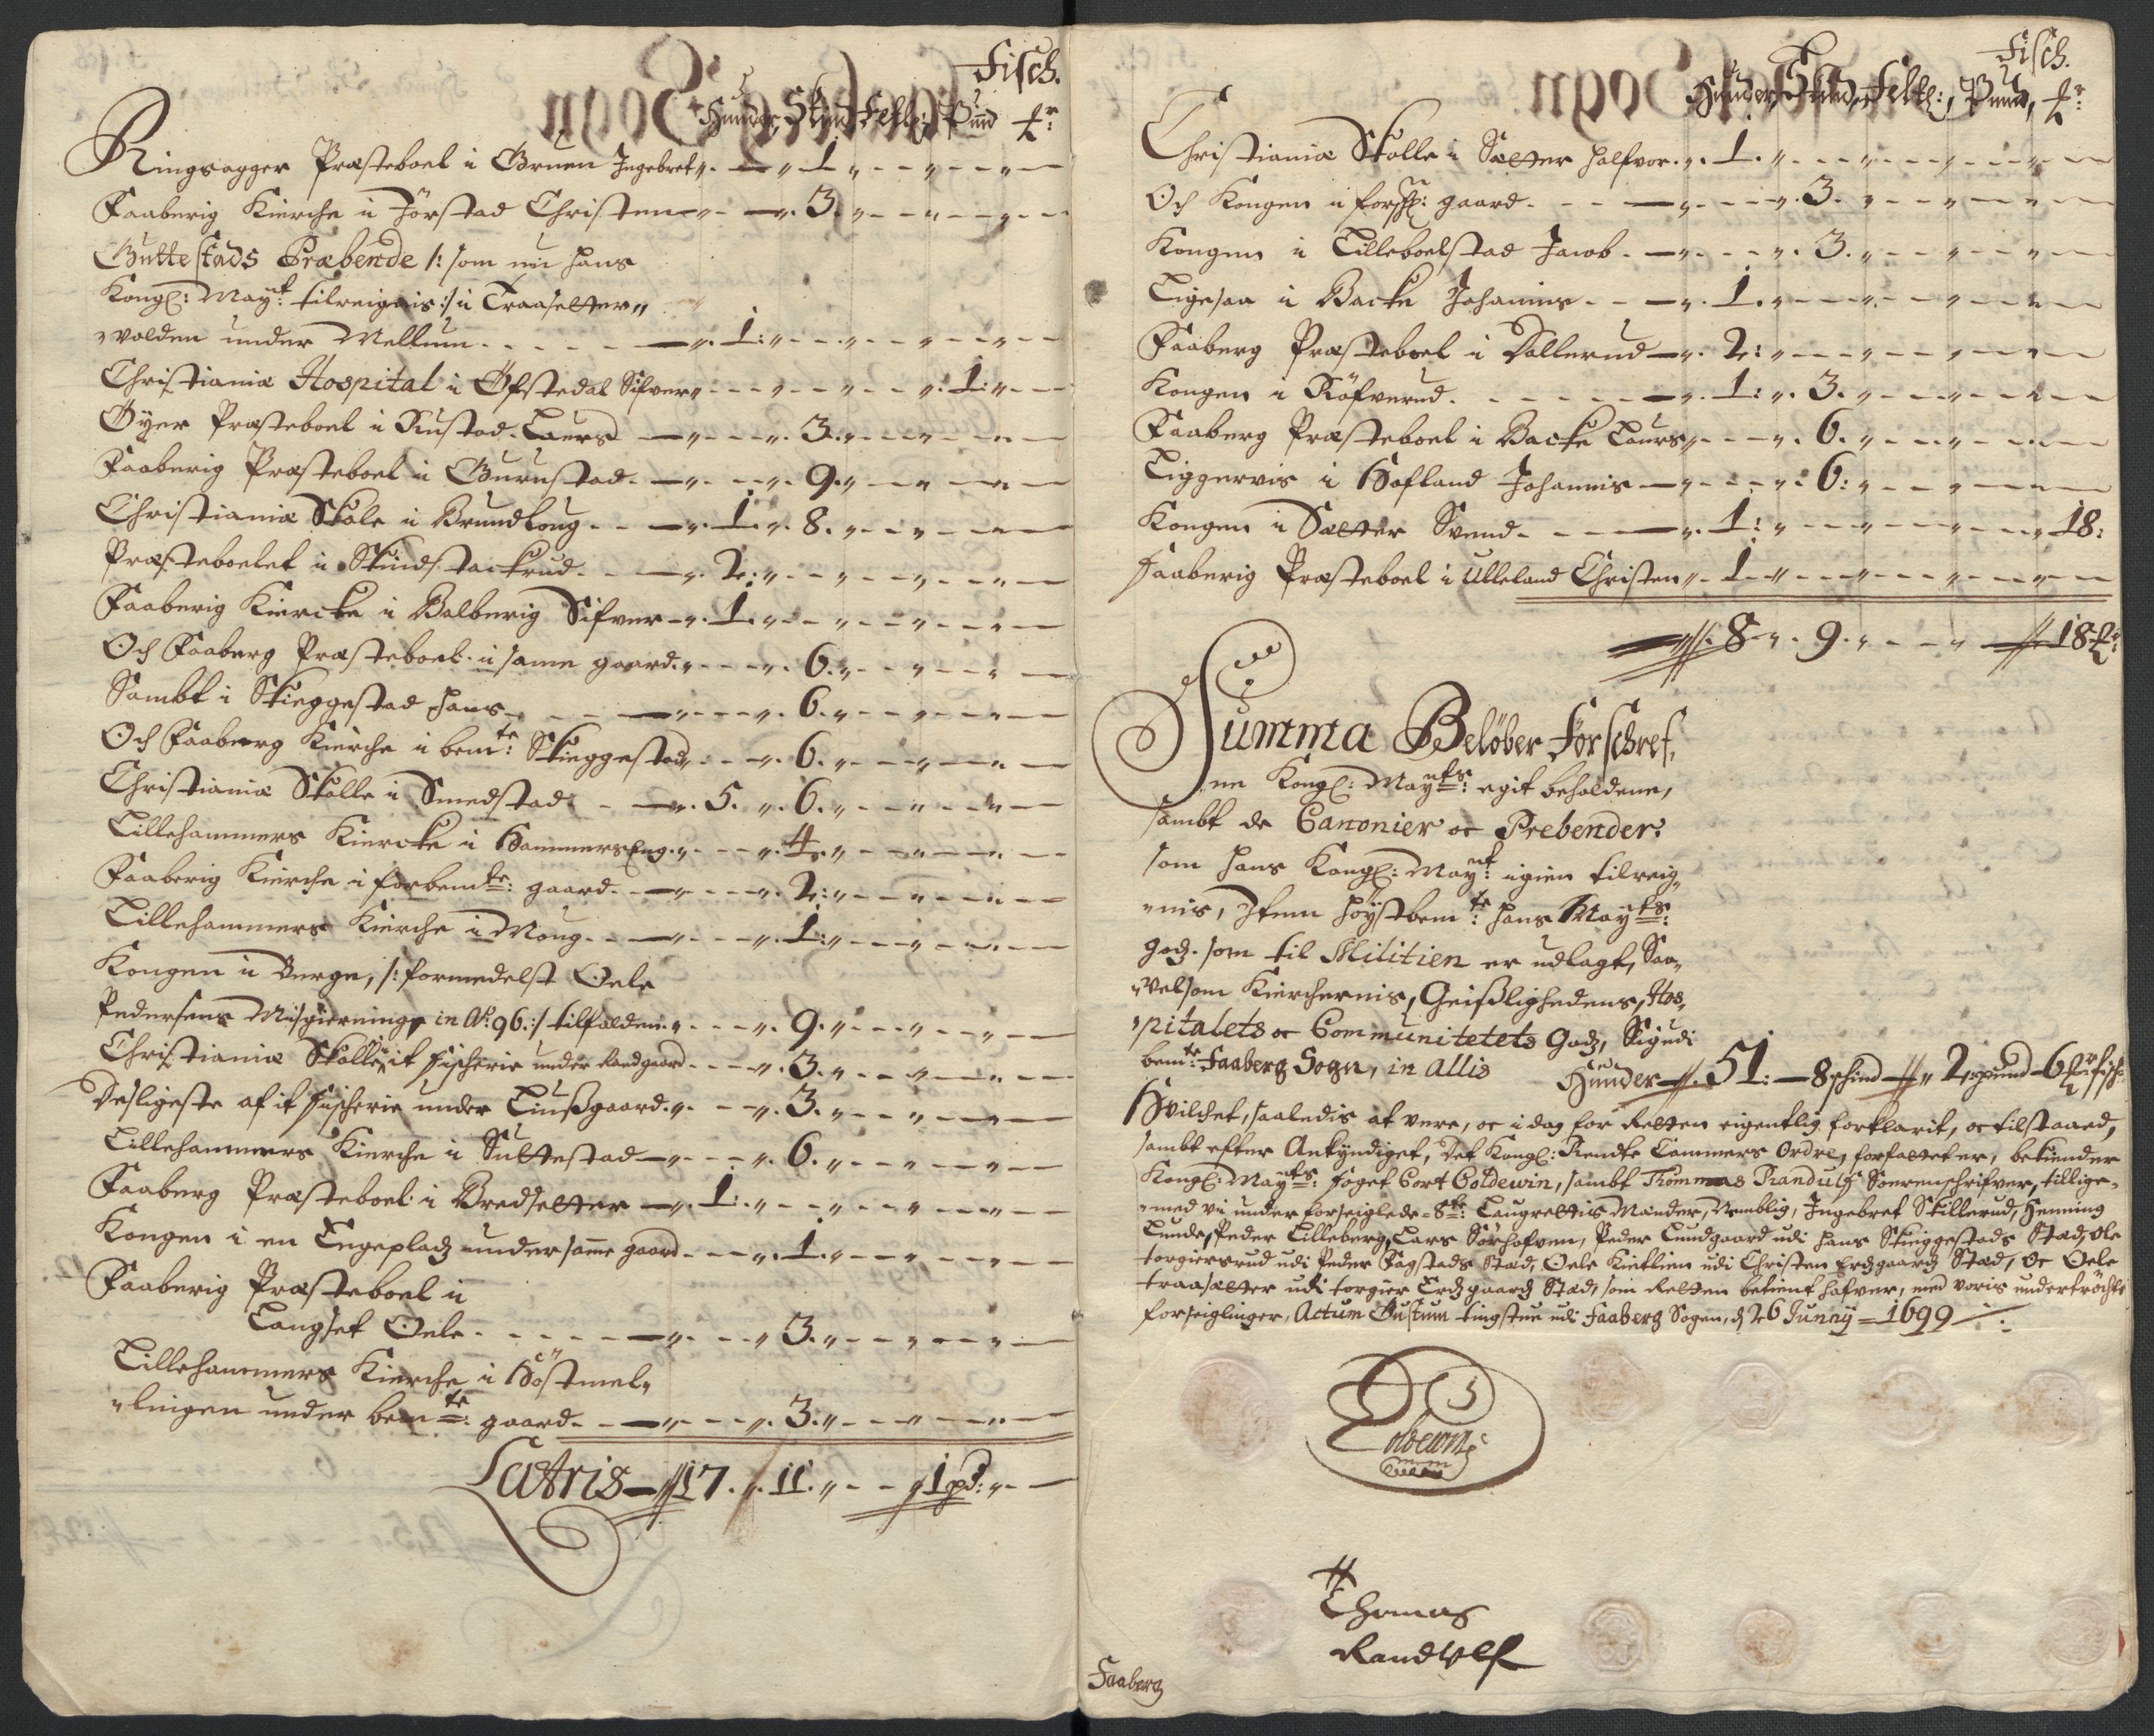 Fisch.
Hunder, Skind, Felle:, Pund ℔r:
Ringsagger Præsteboel i Gruen Ingebret 1
Faaberig Kierche i Jörstad Christen 3.
Guttestads Præbende /: som nu hans
Kongl: Mayt: tilreignis :/ i Traasetter,,
,,volden under Mellum 1:
Christianiæ Hospital i Öfstedal Sifver 1:
Öyer Præsteboel i Rustad Laurs 3.
Faaberig Præsteboel i Gurustad 9.
Christianiæ Skole i Brundloug 1. 8.
Præsteboelet i Skindstackrud 2:
Faaberig Kiercke i Balberig Sifver 1.
Och Faaberg Præsteboel i same gaard 6.
Sambt i Skieggestad Hans 6.
Och Faaberg Kierche i bemte: Skieggestad 6.
Christianiæ Skolle i Smedstad 5. 6.
Lillehammers Kiercke i HammersEng 4.
Faaberig Kierche i forbemte: gaard 2:
Lillehammers Kierche i Moug 1:
Kongen i Berge, /: formedelst Oele
Pedersens Misgierninge in Ao: 96 :/ tilfalden 9.
Christianiæ Skolle i it fischerie under Landgaard 3.
Desligeste af it fischerie under Liusgaard 3.
Lillehammers Kierche i Sulttestad 6.
Faaberg Præsteboel i Bredsetter 1:
Kongen i en Engeplads under same gaard 1.
Faaberig Præsteboel i
Langset Oele 3.
Lillehammers Kierche i Höstmel,,
,,lingen under bemte: gaard 3.
Latris 17. 11. 1 pd:
Fisch.
Hunder, Skind, Felle:, Pund, ℔r:
Christianiæ Skolle i Sætter Halfvor 1.
Och Kongen i forschr: gaard 3.
Kongen i Lilleboelstad Jacob 3.
Ligesaa i Backe Johannis 1.
Faaberg Præsteboel i Dallerud 2:
Kongen i Röfverud 1: 3.
Faaberg Præsteboel i Backe Laurs 6.
Liggervis i Hofland Johannis 6:
Kongen i Sætter Svend 1: 18:
Faaberig Præsteboel i Ulleland Christen 1
8 9. 18 ℔r:
Summa Belöber Forschref,
ne Kongl: Mayts: egit beholdene,
sambt de Canonier oc Prebender:
som hans Kongl: Mayt: igien tilreig,,
,,nis, Item höystbemte: hans Mayts:
gods. som til Militien er udlagt, Saa,,
,,velsom Kierchernis, Geistlighedens, Hos,,
,,pitalets oc Communitetets Gods, Liigudi
bemte: Faaberg Sogn, in Allis Hunder 51: 8 schind 2 pund 6 ℔r fisch:
Hvilchet, saaledis at vere, oc i dag for Retten eigentlig forklarit, oc tilstaaed,
sambt efter Ankyndiget, Det Kongl: Rendte Cammers Ordre, forfatteter, bekiender
Kongl: Mayts: foget Cort Coldewin, sambt Thommas Randulf Sorenschrifver, tillige,,
,,med vii under forseiglede 8te: Laugrettis Mænder, Nemblig, Ingebret Skillerud, Henning
Lunde, Peder Lilleberg, Lars Sörhofven, Peder Lundgaard udi Hans Skieggestads Stæd, Ole
torgiersrud udi Peder Fagstads Stæd, Oele Kietlien udi Christen Erdsgaards Stæd, Oc Oele
traasætter udi torgier Erdsgaards Stæd, som Retten betient hafver, med voris undertröchte
forseiglinger, Actum Gustum tingstue udi Faaberg Sogen, d 26 Junny 1699
Coldewin
Thomas
Randulf
Faaberg